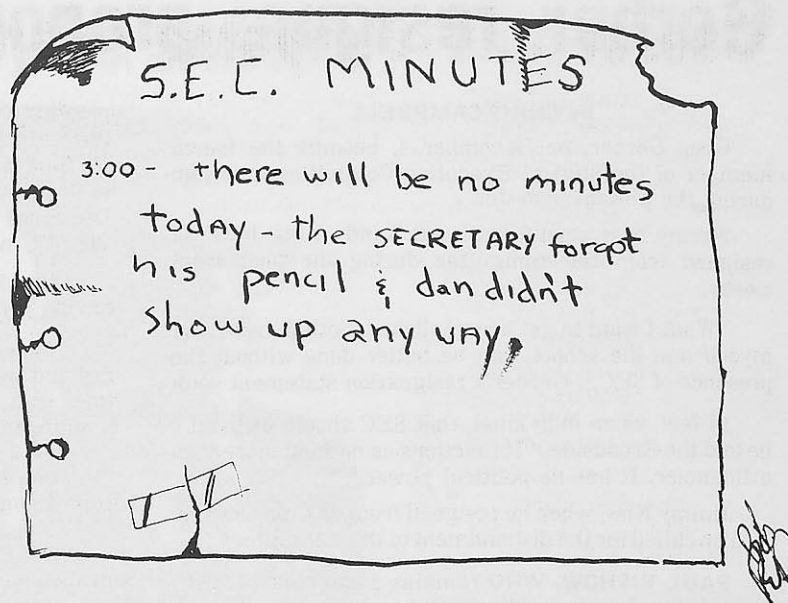 S.E.C. MINUTES
3:00 there will be no minutes
today - the SECRETARY forgot
his pencil & dan didn't
show up any way,